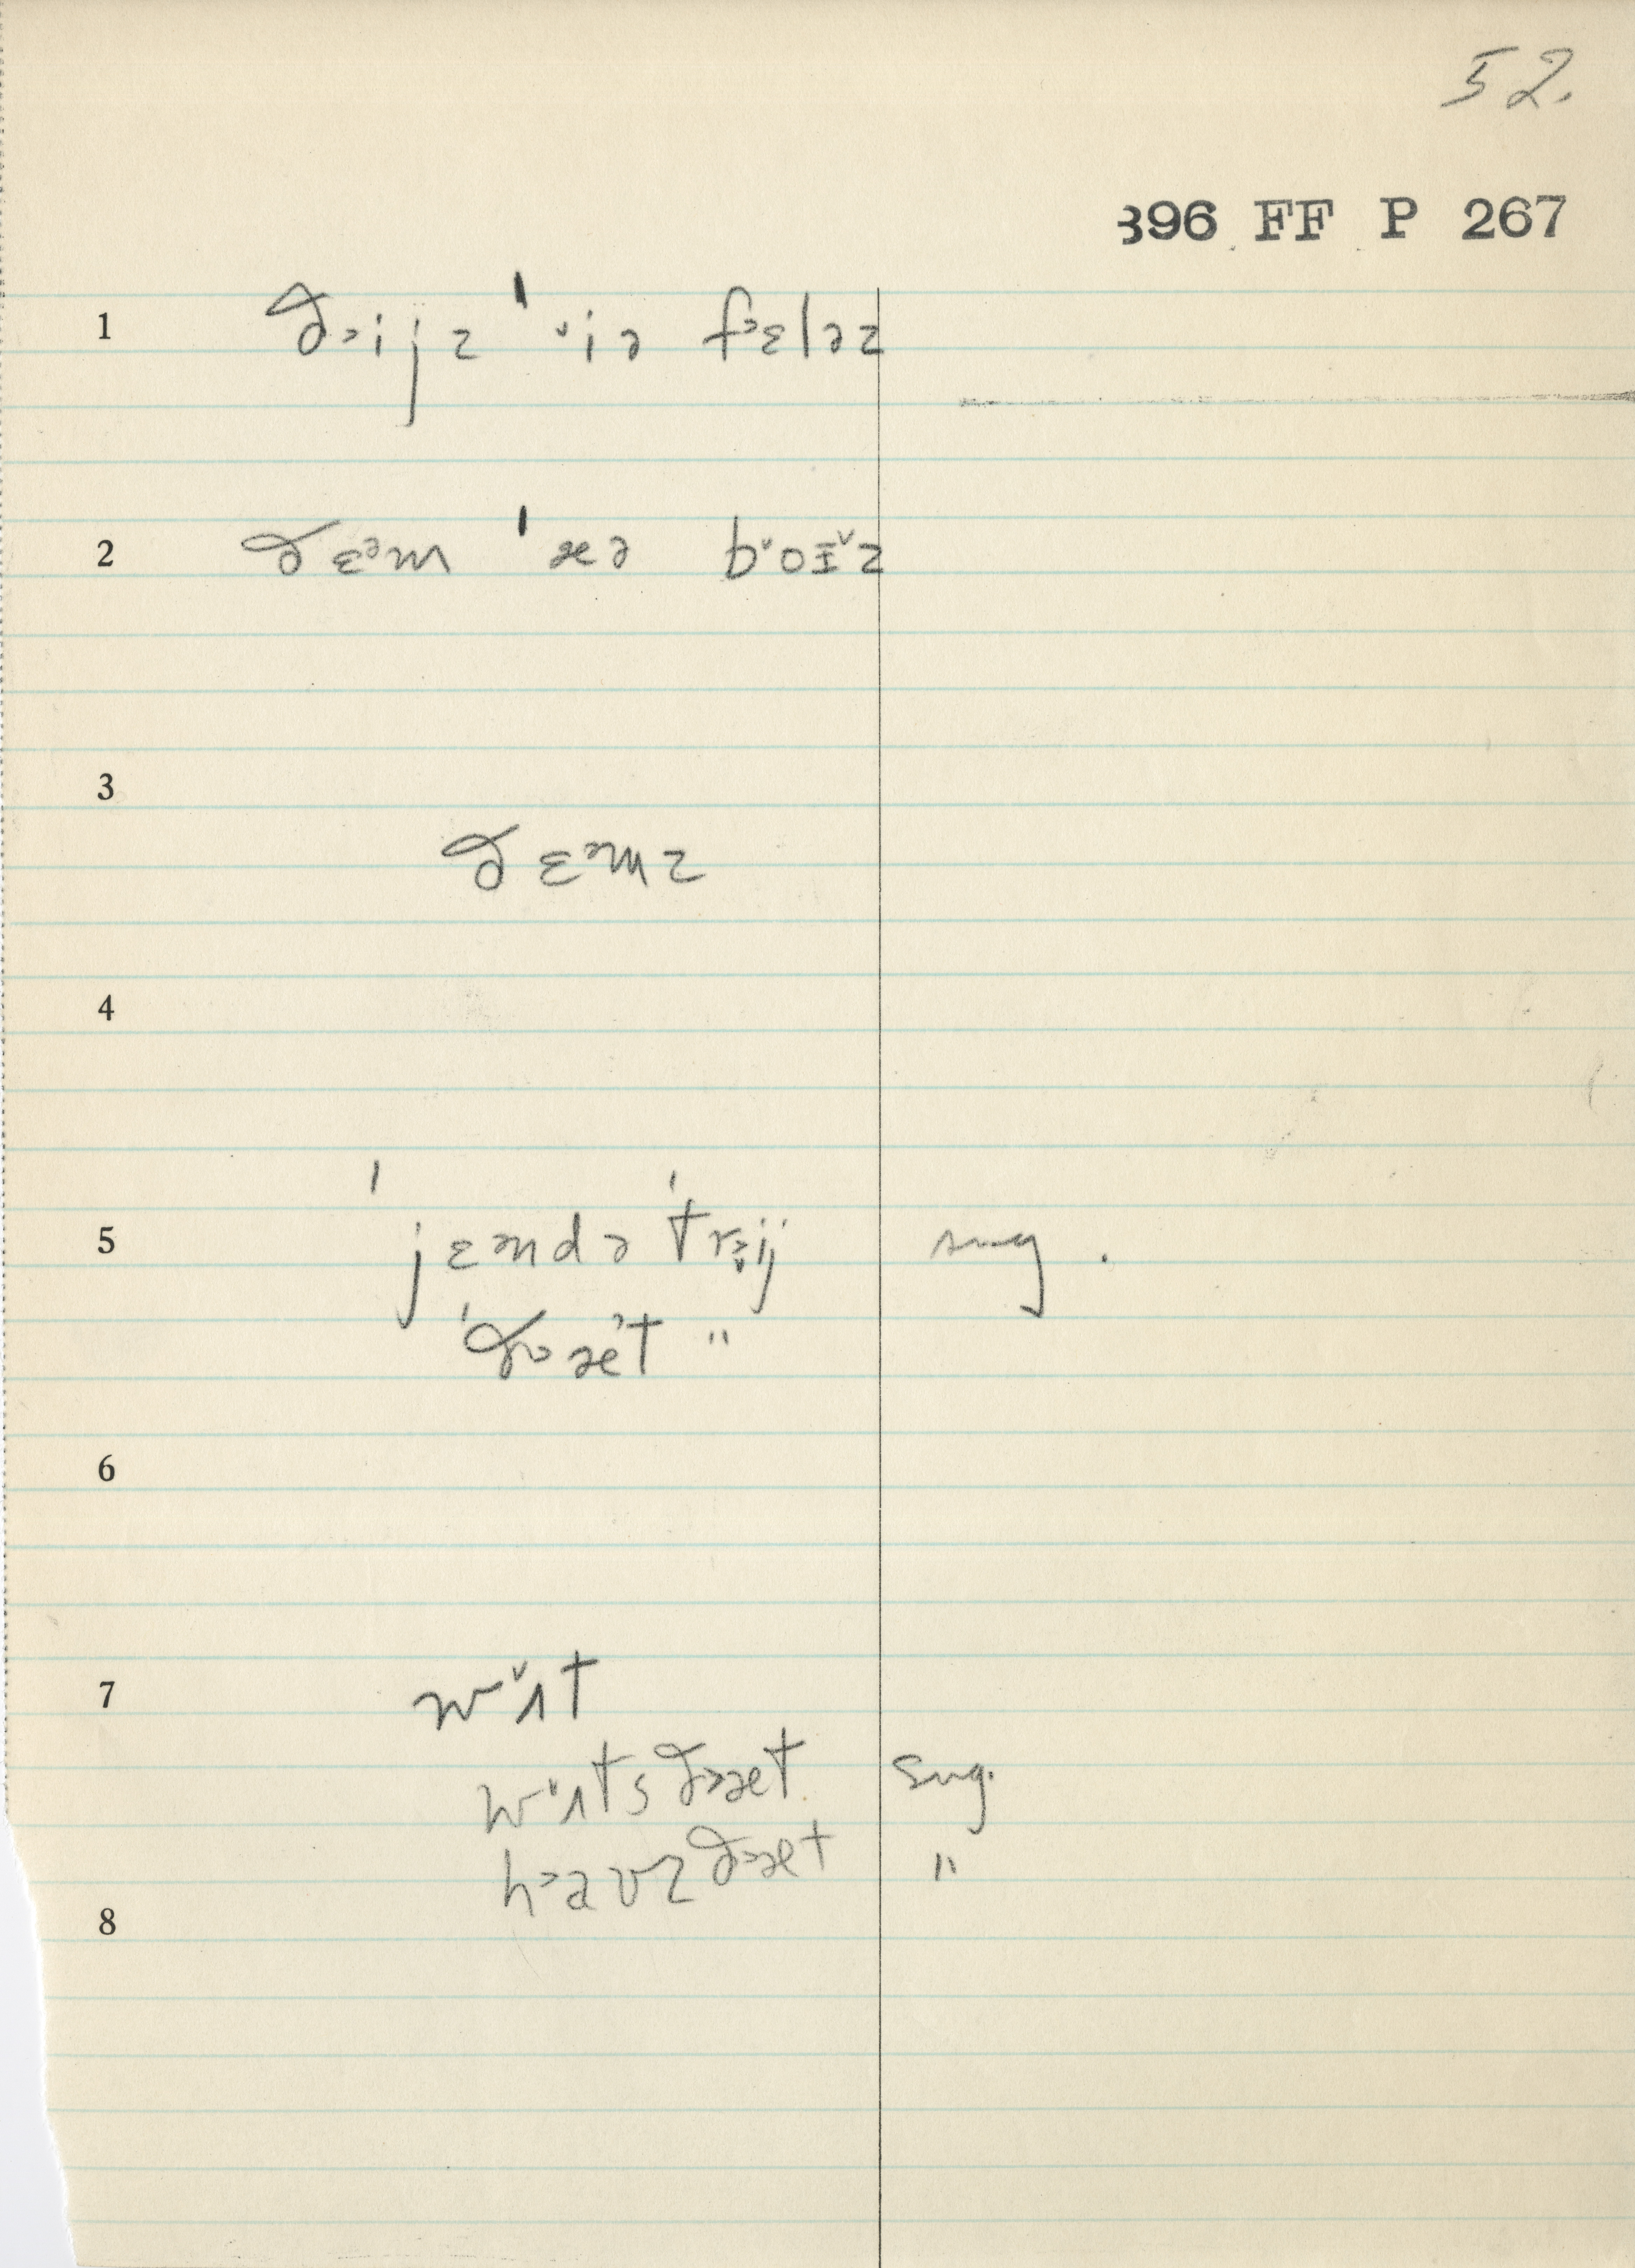 52.
396 FF P 267
1 ð˃ijz ˈ˅iə f˃ɛləz
2 ðɛᵊm ˈæə b˅oɪ˅z
3
ðɛᵊmz
4
5 ˈjɛᵊndə ˈtr˃ij sug.
ˈð˃æ˃t "
6
7 w˅ʌt
w˅ʌts ð˃æt sug.
h˃aʊz ð˃æt "
8